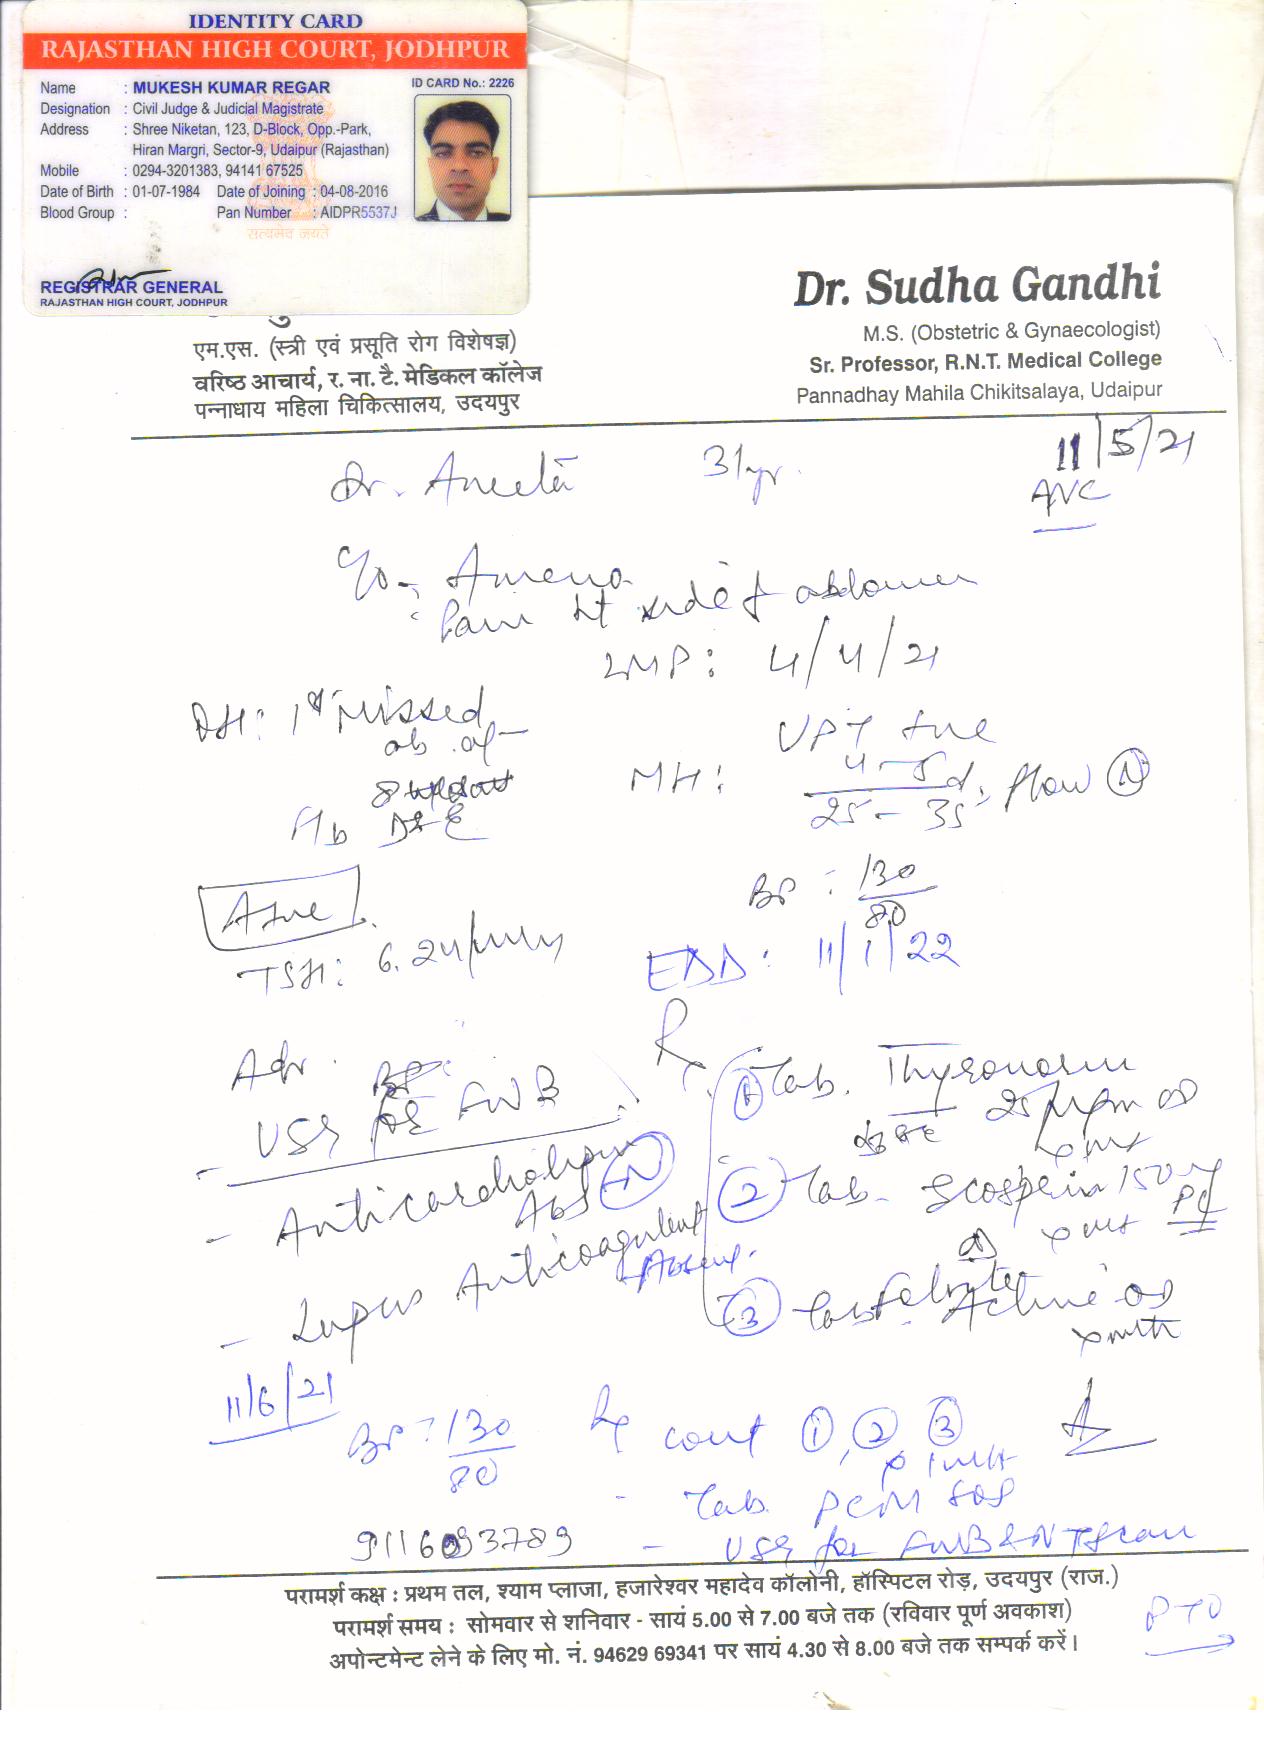 IDENTITY CARD
RAJASTHAN HIGH COURT, JODHPUR
Name : MUKESH KUMAR REGAR
ID CARD No.: 2226
Designation : Civil Judge & Judicial Magistrate
Address : Shree Niketan, 123, D-Block, Opp.-Park,
Hiran Margri, Sector-9, Udaipur (Rajasthan)
Mobile : 0294-3201383, 94141 67525
Date of Birth : 01-07-1984 Date of Joining : 04-08-2016
Blood Group : Pan Number : AIDPR5537J
सत्यमेव जयते
REGISTRAR GENERAL
RAJASTHAN HIGH COURT, JODHPUR
एम.एस. (स्त्री एवं प्रसूति रोग विशेषज्ञ)
वरिष्ठ आचार्य, र. ना. टै. मेडिकल कॉलेज
पन्नाधाय महिला चिकित्सालय, उदयपुर
Dr. Sudha Gandhi
M.S. (Obstetric & Gynaecologist)
Sr. Professor, R.N.T. Medical College
Pannadhay Mahila Chikitsalaya, Udaipur
Dr. Aneeta 31yr. 11/5/21
ANC
c/o - Ameno
Pain side of abdomen
LMP : 4/4/21
OH : 1st Missed
ab. of
UPT +ve
MH : 4-5d/25-35 flow N
D&E
BP : 130/80
A +ve
TSH : 6.24
EDD : 11/1/22
Adv.
Rx
- USG for FWB
1 Tab. Thyronorm
25 µgm OD
- Anticardiolipin
Abs N
2 Tab. Ecosprin 150mg
- Lupus Anticoagulent
Absent.
3 Tab. Active OD
x mth
11/6/21
BP : 130/80
Rx cont 1, 2, 3
x 1 mth
- Tab PCM SOS
9116093789
- USG for FWB & NT Scan
परामर्श कक्ष : प्रथम तल, श्याम प्लाजा, हजारेश्वर महादेव कॉलोनी, हॉस्पिटल रोड़, उदयपुर (राज.)
परामर्श समय : सोमवार से शनिवार - सायं 5.00 से 7.00 बजे तक (रविवार पूर्ण अवकाश)
अपोन्टमेन्ट लेने के लिए मो. नं. 94629 69341 पर सायं 4.30 से 8.00 बजे तक सम्पर्क करें।
PTO